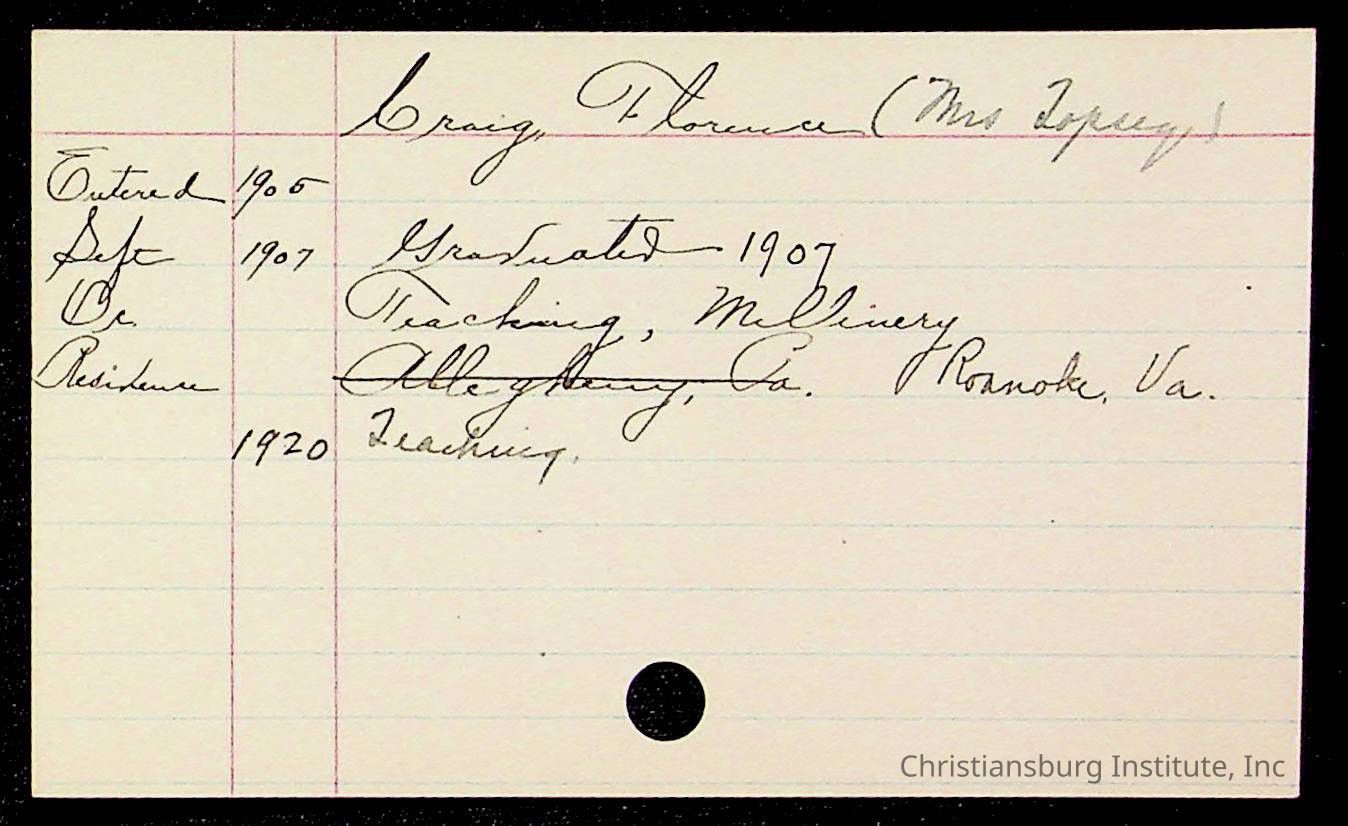 Craig, Florence (Mrs Topsey)
Entered 1905
Left 1907 Graduated 1907
Oc. Teaching, Millinery
Residence Allegheny, Pa. Roanoke, Va.
1920 Teaching.
Christiansburg Institute, Inc